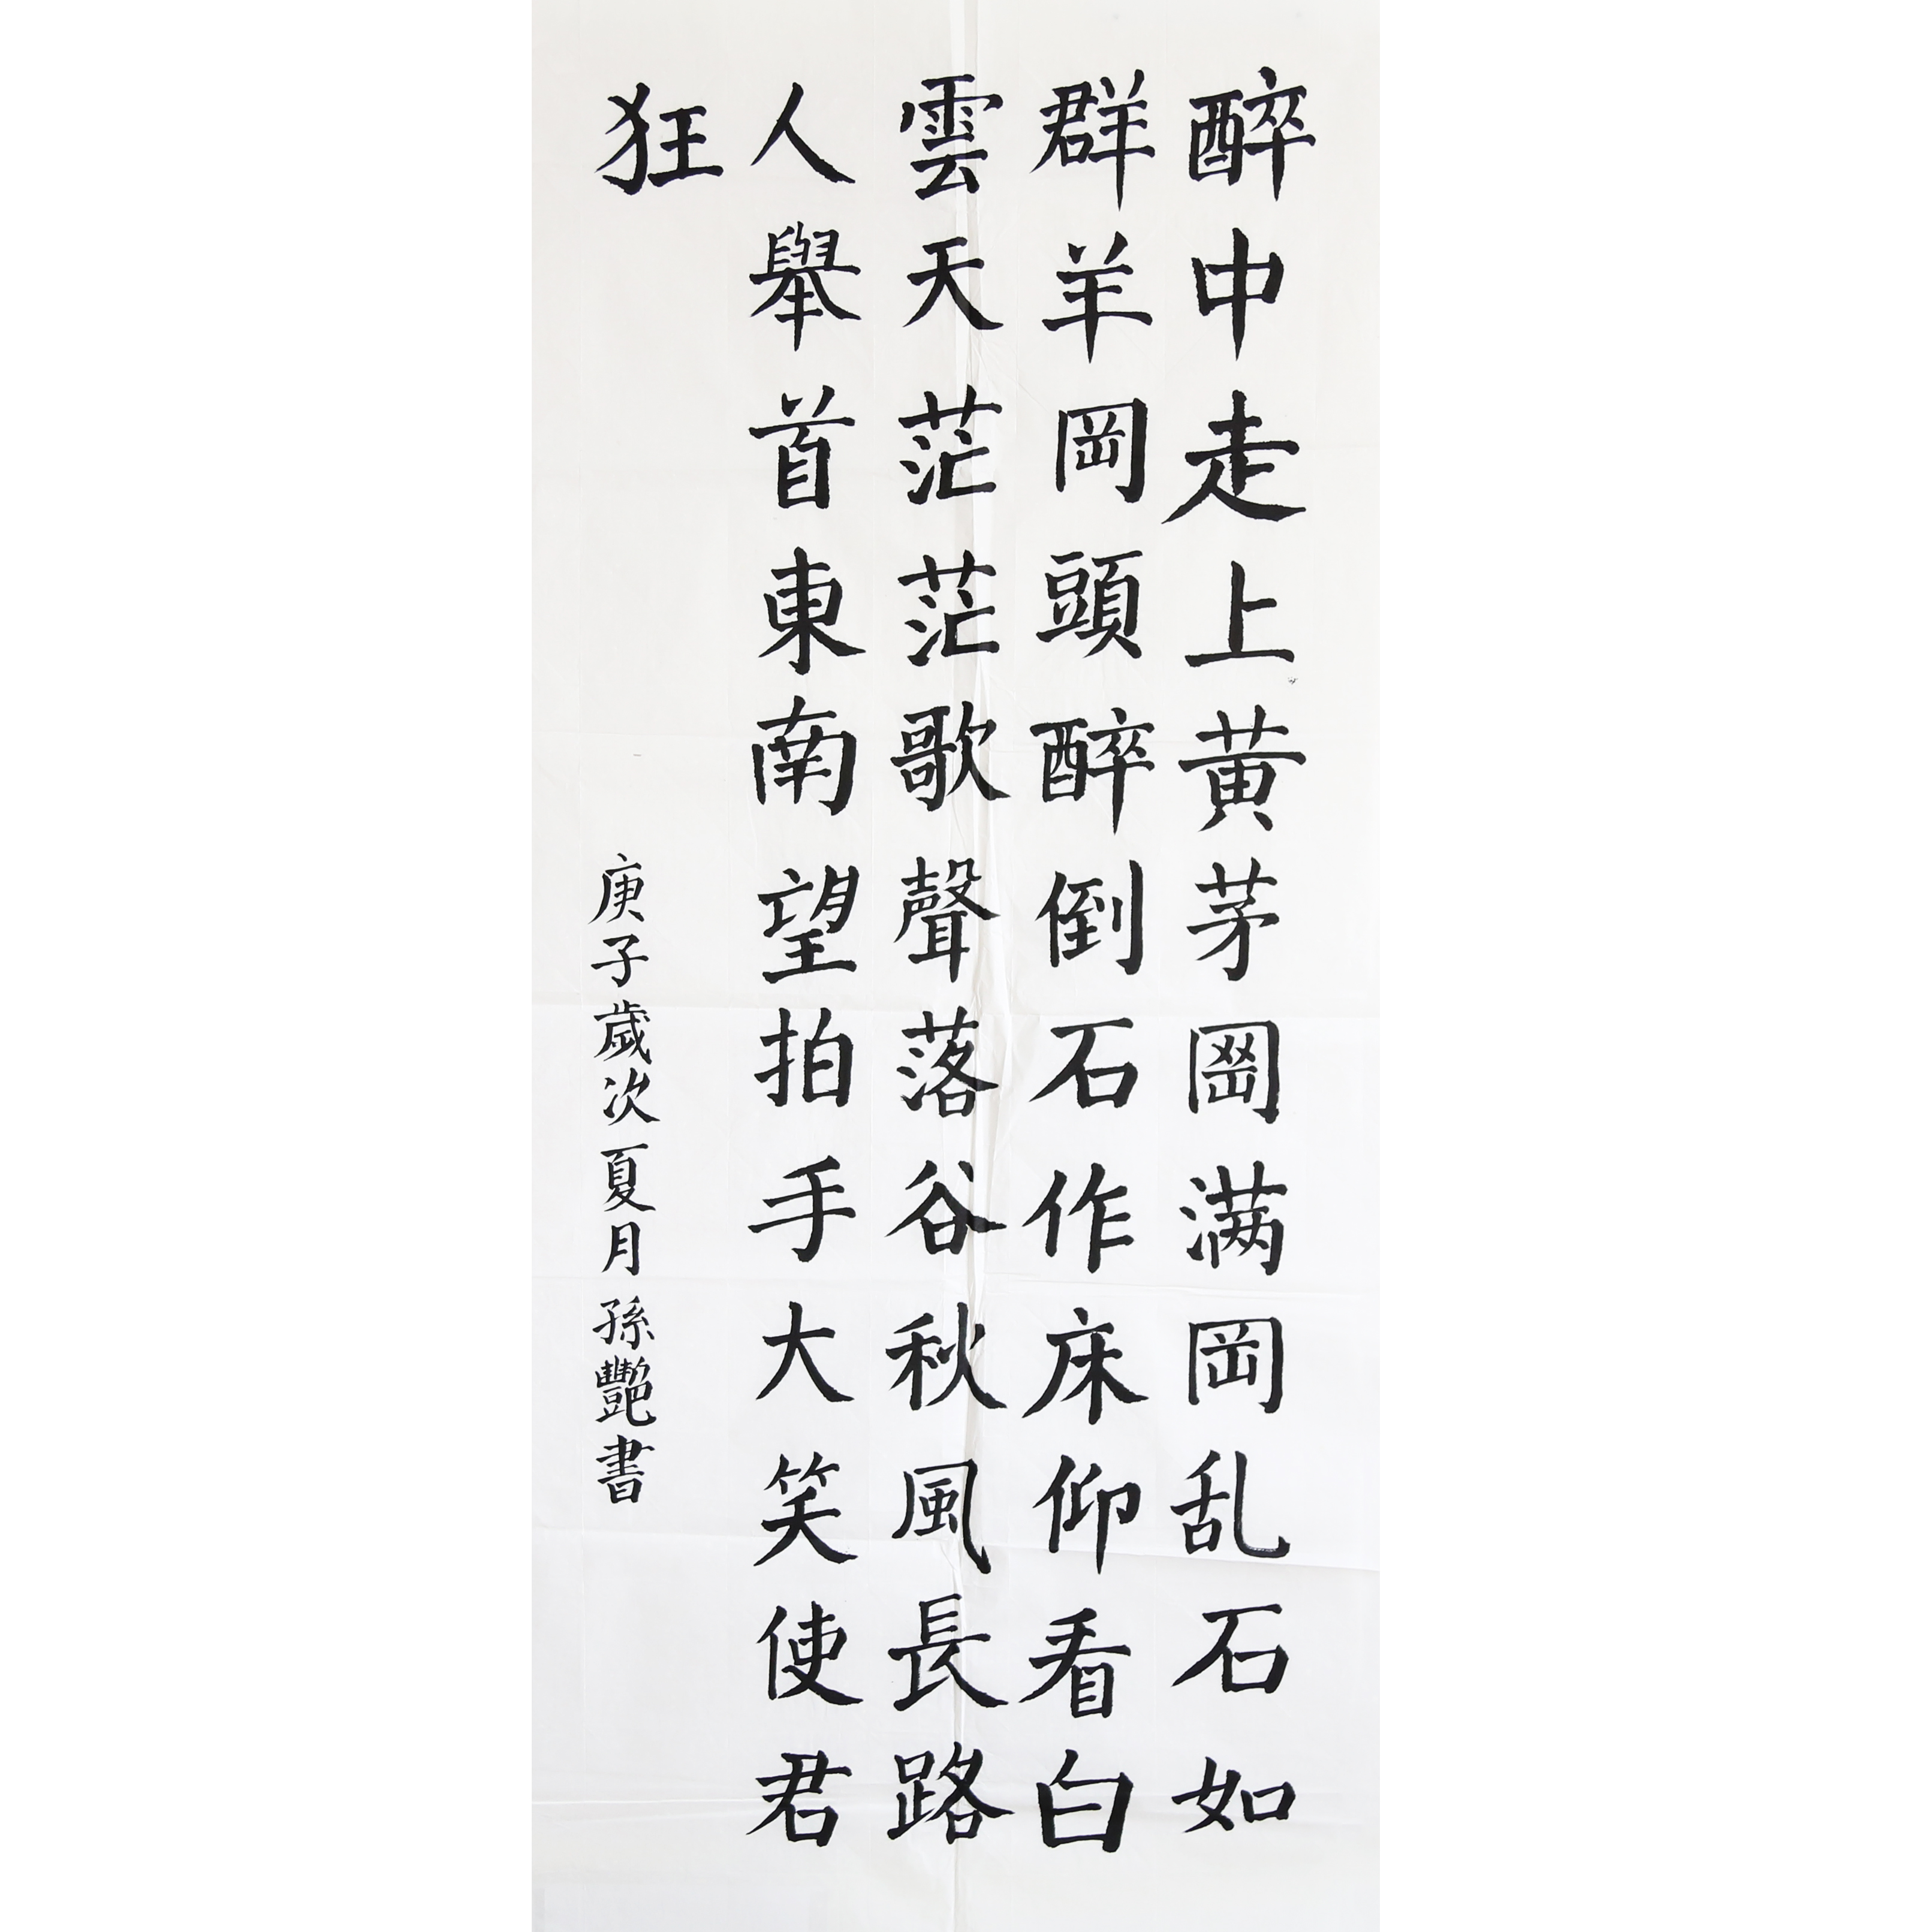 醉中走上黄茅岡满岡乱石如
群羊岡頭醉倒石作床仰看白
雲天茫茫歌聲落谷秋風長路
人舉首東南望拍手大笑使君
狂
庚子歲次夏月孫艷書